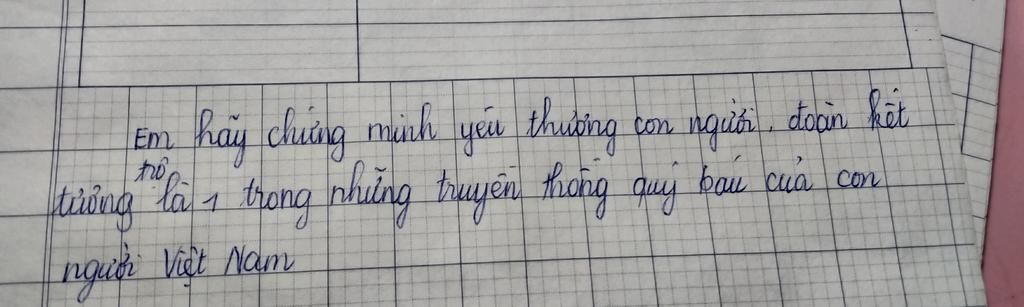 Em hãy chứng minh yêu thương con người, đoàn kết
tương trợ là 1 trong những truyền thống quý báu của con
người Việt Nam